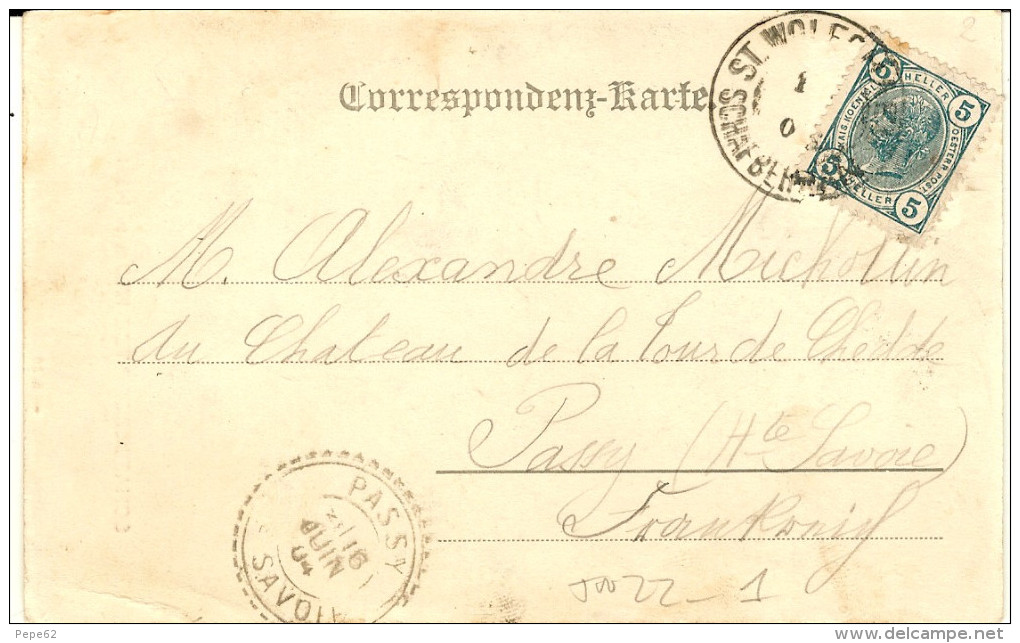 Correspondenz-Karte
ST. WOLFG
SCHAFBERG
1
0
5 HELLER 5
KAIS. KOENIGL. OESTERR. POST.
5 HELLER 5
M. Alexandre Michollin
au Chateau de la Tour de Chedde
Passy (Hte Savoie)
Frankreich
PASSY
16
JUIN
04
SAVOIE
22 - 1
2
Pepe62
www.delcampe.net